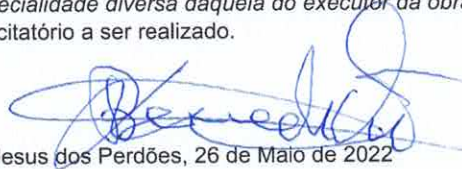 pecialidade diversa daquela do executor da obra
citatório a ser realizado.
esus dos Perdões, 26 de Maio de 2022